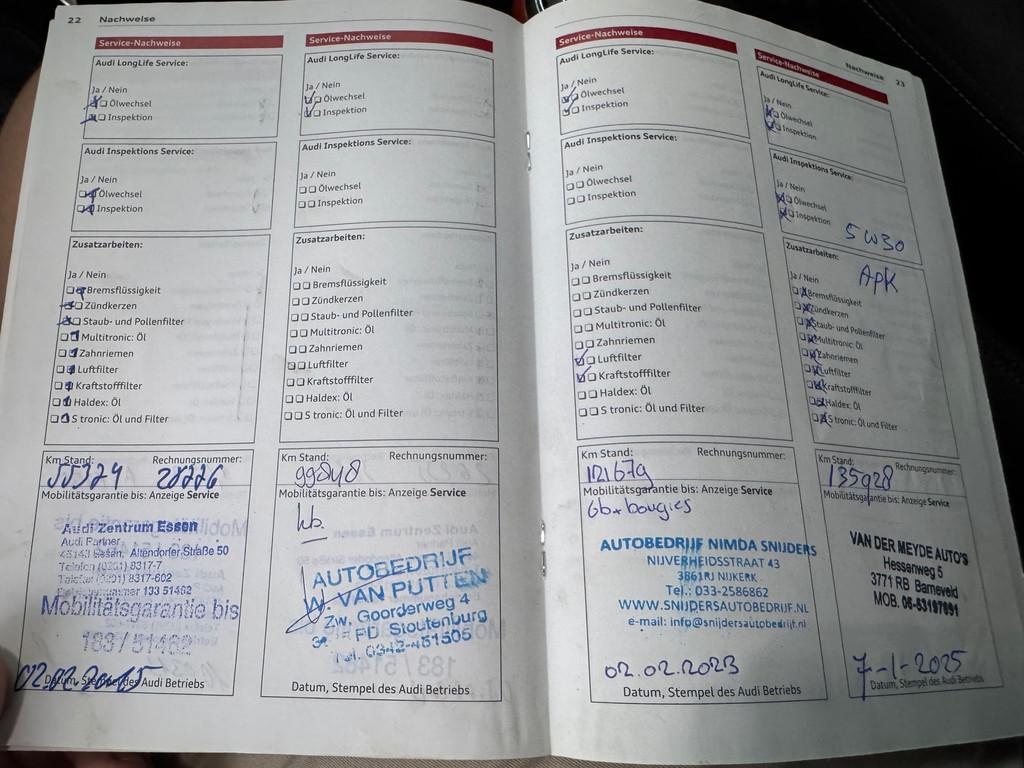 22 Nachweise
Service-Nachweise
Audi LongLife Service:
Ja / Nein
Ölwechsel
Inspektion
Audi Inspektions Service:
Ja / Nein
Ölwechsel
Inspektion
Zusatzarbeiten:
Ja / Nein
Bremsflüssigkeit
Zündkerzen
Staub- und Pollenfilter
Multitronic: Öl
Zahnriemen
Luftfilter
Kraftstofffilter
Haldex: Öl
S tronic: Öl und Filter
Km Stand: Rechnungsnummer:
55324 28226
Mobilitätsgarantie bis: Anzeige Service
Audi Zentrum Essen
Audi Partner
45143 Essen, Altendorfer Straße 50
Telefon (0201) 8317-7
Telefax (0201) 8317-602
133 51462
Mobilitätsgarantie bis
183/51462
02.02.2015
Datum, Stempel des Audi Betriebs
Service-Nachweise
Audi LongLife Service:
Ja / Nein
Ölwechsel
Inspektion
Audi Inspektions Service:
Ja / Nein
Ölwechsel
Inspektion
Zusatzarbeiten:
Ja / Nein
Bremsflüssigkeit
Zündkerzen
Staub- und Pollenfilter
Multitronic: Öl
Zahnriemen
Luftfilter
Kraftstofffilter
Haldex: Öl
S tronic: Öl und Filter
Km Stand: Rechnungsnummer:
99848
Mobilitätsgarantie bis: Anzeige Service
AUTOBEDRIJF
W. VAN PUTTEN
Zw. Goorderweg 4
FD Stoutenburg
Tel. 0342-451505
Datum, Stempel des Audi Betriebs
Service-Nachweise
Audi LongLife Service:
Ja / Nein
Ölwechsel
Inspektion
Audi Inspektions Service:
Ja / Nein
Ölwechsel
Inspektion
Zusatzarbeiten:
Ja / Nein
Bremsflüssigkeit
Zündkerzen
Staub- und Pollenfilter
Multitronic: Öl
Zahnriemen
Luftfilter
Kraftstofffilter
Haldex: Öl
S tronic: Öl und Filter
Km Stand: Rechnungsnummer:
121679
Mobilitätsgarantie bis: Anzeige Service
bougies
AUTOBEDRIJF NIMDA SNIJDERS
NIJVERHEIDSSTRAAT 43
3861RJ NIJKERK
Tel.: 033-2586862
WWW.SNIJDERSAUTOBEDRIJF.NL
e-mail: info@snijdersautobedrijf.nl
02.02.2023
Datum, Stempel des Audi Betriebs
Nachweise 23
Service-Nachweise
Audi LongLife Service:
Ja / Nein
Ölwechsel
Inspektion
Audi Inspektions Service:
Ja / Nein
Ölwechsel
Inspektion
5W30
Zusatzarbeiten:
APK
Ja / Nein
Bremsflüssigkeit
Zündkerzen
Staub- und Pollenfilter
Multitronic: Öl
Zahnriemen
Luftfilter
Kraftstofffilter
Haldex: Öl
S tronic: Öl und Filter
Km Stand: Rechnungsnummer:
135928
Mobilitätsgarantie bis: Anzeige Service
VAN DER MEYDE AUTO'S
Hessenweg 5
3771 RB Barneveld
MOB. 06-53197891
7-1-2025
Datum, Stempel des Audi Betriebs